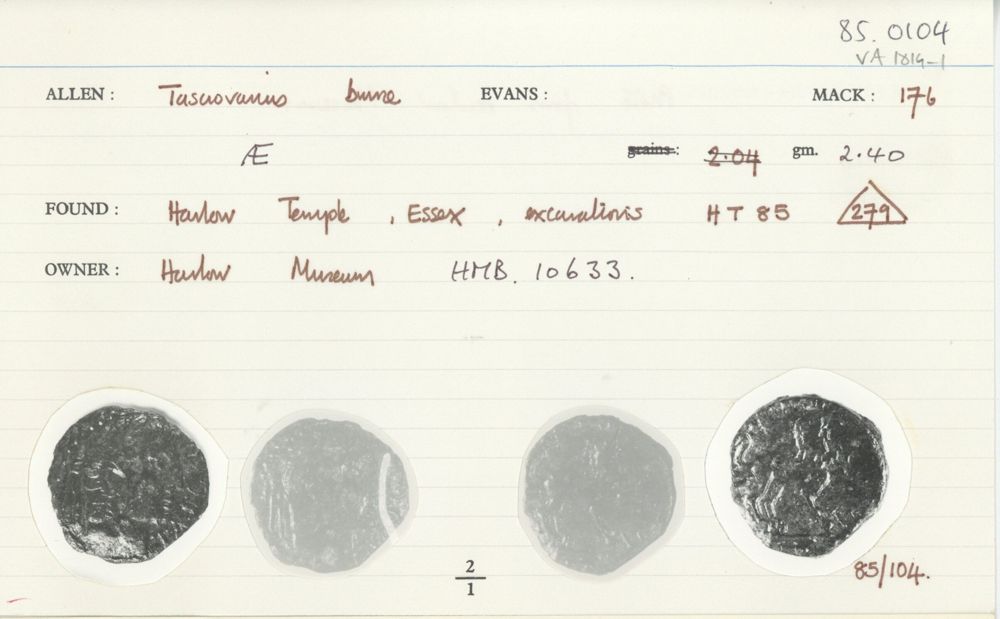 85.0104
VA 1819-1
ALLEN : Tasciovanus bronze EVANS : MACK : 176
Æ grains: 2.04 gm. 2.40
FOUND : Harlow Temple, Essex, excavations HT 85 279
OWNER : Harlow Museum HMB. 10633.
2
1
85/104.